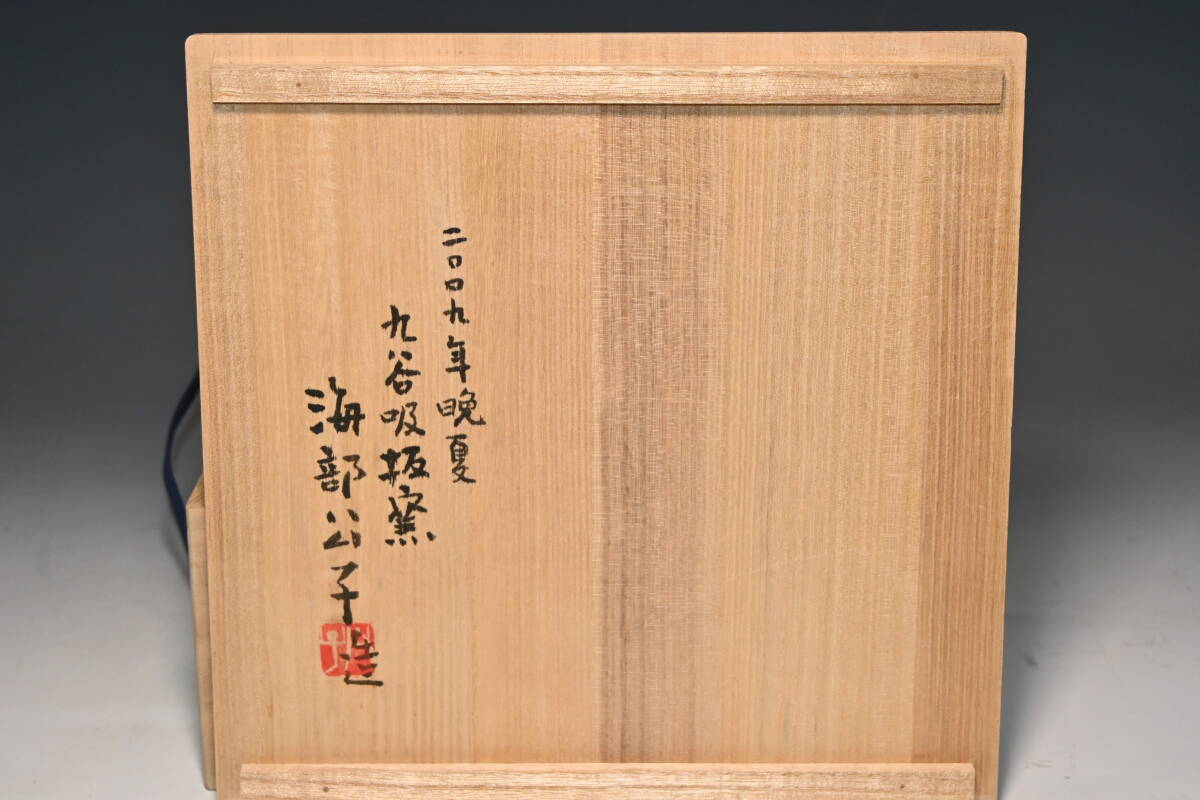 二〇〇九年晩夏
九谷吸坂窯
海部公子造